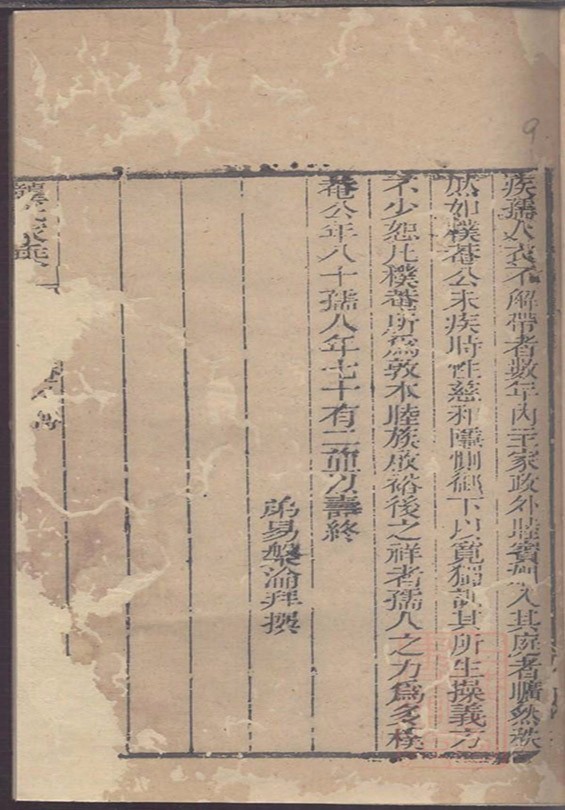 疾孺人衣不解帶者數年內主家政外睦賓入其庭者曠然秩
然如樸菴公未疾時性慈和御下以寬獨訓其所生操義方
不少恕凡樸菴所爲敦本睦族啟裕後之祥者孺人之力爲多樸
菴公年八十孺人年七十有二並以壽終
弟易槃淪拜撰
9